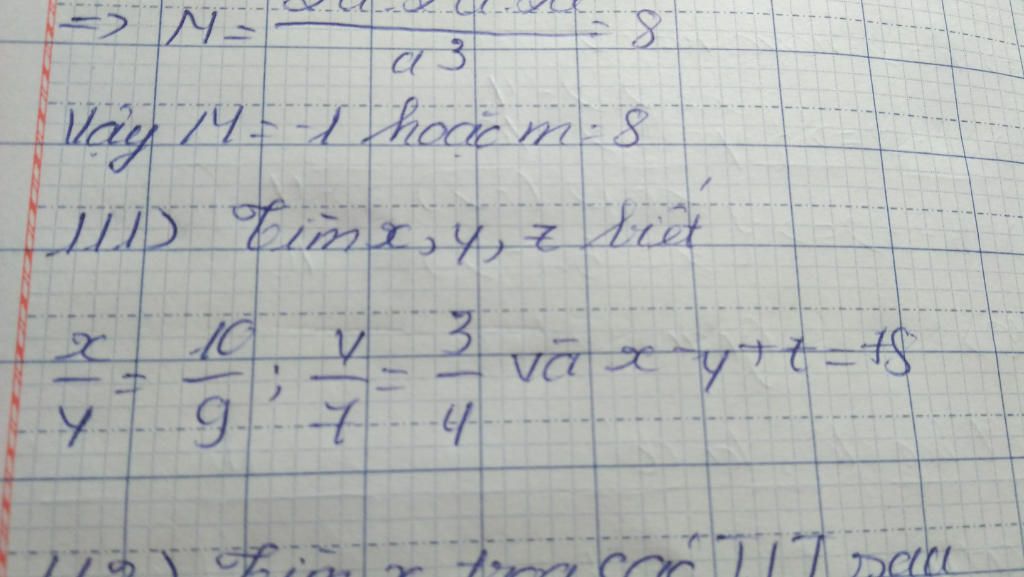 => M = / a3 = 8
Vậy M = -1 hoặc m = 8
111) Tìm x, y, z biết
x/y = 10/9 ; y/7 = 3/4 và x - y + z = 78
112) Tìm x trong các TLT sau